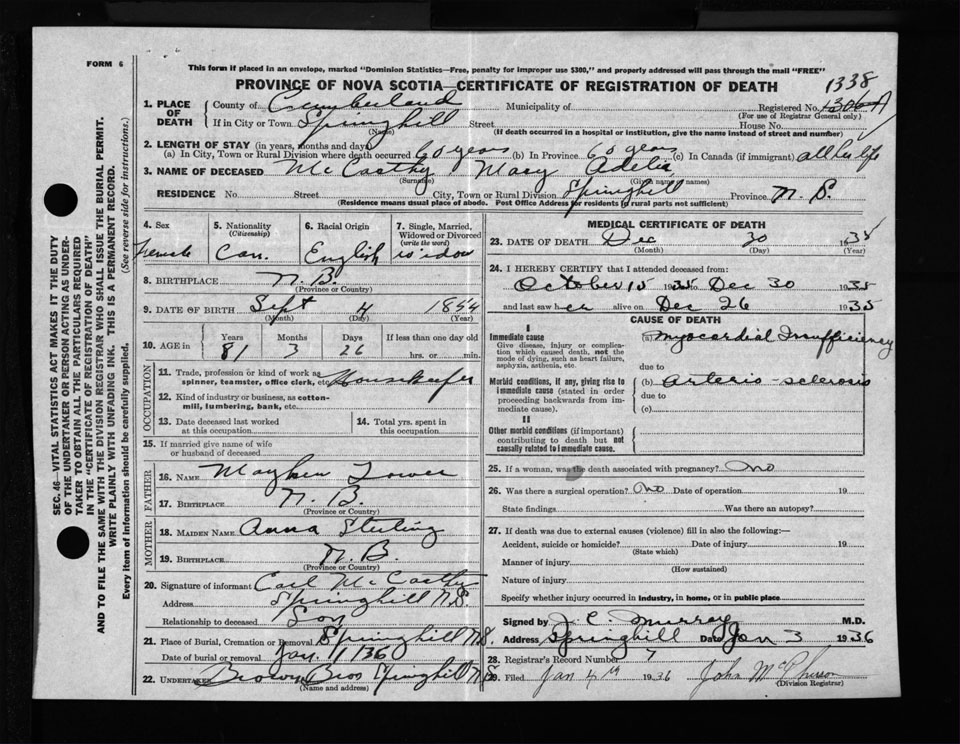 FORM 6
This form if placed in an envelope, marked "Dominion Statistics—Free, penalty for improper use $300," and properly addressed will pass through the mail "FREE"
PROVINCE OF NOVA SCOTIA—CERTIFICATE OF REGISTRATION OF DEATH
1338
1. PLACE OF DEATH
County of Cumberland Municipality of Registered No. 1306A
(For use of Registrar General only)
If in City or Town Springhill Street House No.
(Name) (If death occurred in a hospital or institution, give the name instead of street and number)
2. LENGTH OF STAY (in years, months and days)
(a) In City, Town or Rural Division where death occurred 60 years (b) In Province 60 years (c) In Canada (if immigrant) all her life
3. NAME OF DECEASED McCarthy Mary Adelia
(Surname) (Given name or names)
RESIDENCE No. Street City, Town or Rural Division Springhill Province N.S.
(Residence means usual place of abode. Post Office Address for residents of rural parts not sufficient)
4. Sex Female
5. Nationality (Citizenship) Can.
6. Racial Origin English
7. Single, Married, Widowed or Divorced (write the word) widow
8. BIRTHPLACE N.B.
(Province or Country)
9. DATE OF BIRTH Sept 4 1854
(Month) (Day) (Year)
10. AGE in Years 81 Months 3 Days 26 If less than one day old hrs. or min.
OCCUPATION
11. Trade, profession or kind of work as spinner, teamster, office clerk, etc. Housekeeper
12. Kind of industry or business, as cotton-mill, lumbering, bank, etc.
13. Date deceased last worked at this occupation
14. Total yrs. spent in this occupation
15. If married give name of wife or husband of deceased
FATHER
16. NAME Mayhew Tower
17. BIRTHPLACE N.B.
(Province or Country)
MOTHER
18. MAIDEN NAME Anna Sterling
19. BIRTHPLACE N.B.
(Province or Country)
20. Signature of informant Carl McCarthy
Address Springhill N.S.
Relationship to deceased Son
21. Place of Burial, Cremation or Removal Springhill N.S.
Date of burial or removal Jan. 1 1936
22. Undertaker Brown Bros Springhill N.S.
(Name and address)
MEDICAL CERTIFICATE OF DEATH
23. DATE OF DEATH Dec 30 1935
(Month) (Day) (Year)
24. I HEREBY CERTIFY that I attended deceased from:
October 15 1935 to Dec 30 1935
and last saw her alive on Dec 26 1935
CAUSE OF DEATH
I
Immediate cause
Give disease, injury or complication which caused death, not the mode of dying, such as heart failure, asphyxia, asthenia, etc.
(a) Myocardial Insufficiency
due to
Morbid conditions, if any, giving rise to immediate cause (stated in order proceeding backwards from immediate cause).
(b) Arterio-sclerosis
due to
(c)
II
Other morbid conditions (if important) contributing to death but not causally related to immediate cause.
25. If a woman, was the death associated with pregnancy? No
26. Was there a surgical operation? No Date of operation 19
State findings Was there an autopsy?
27. If death was due to external causes (violence) fill in also the following:—
Accident, suicide or homicide? Date of injury 19
(State which)
Manner of injury
(How sustained)
Nature of injury
Specify whether injury occurred in industry, in home, or in public place
Signed by J. C. Murray M.D.
Address Springhill Date Jan 3 1936
28. Registrar's Record Number 7
29. Filed Jan 4th 1936
(Division Registrar)
SEC. 46—VITAL STATISTICS ACT MAKES IT THE DUTY
OF THE UNDERTAKER OR PERSON ACTING AS UNDER-
TAKER TO OBTAIN ALL THE PARTICULARS REQUIRED
IN THE "CERTIFICATE OF REGISTRATION OF DEATH"
AND TO FILE THE SAME WITH THE DIVISION REGISTRAR WHO SHALL ISSUE THE BURIAL PERMIT.
WRITE PLAINLY WITH UNFADING INK. THIS IS A PERMANENT RECORD.
Every item of information should be carefully supplied. (See reverse side for instructions.)